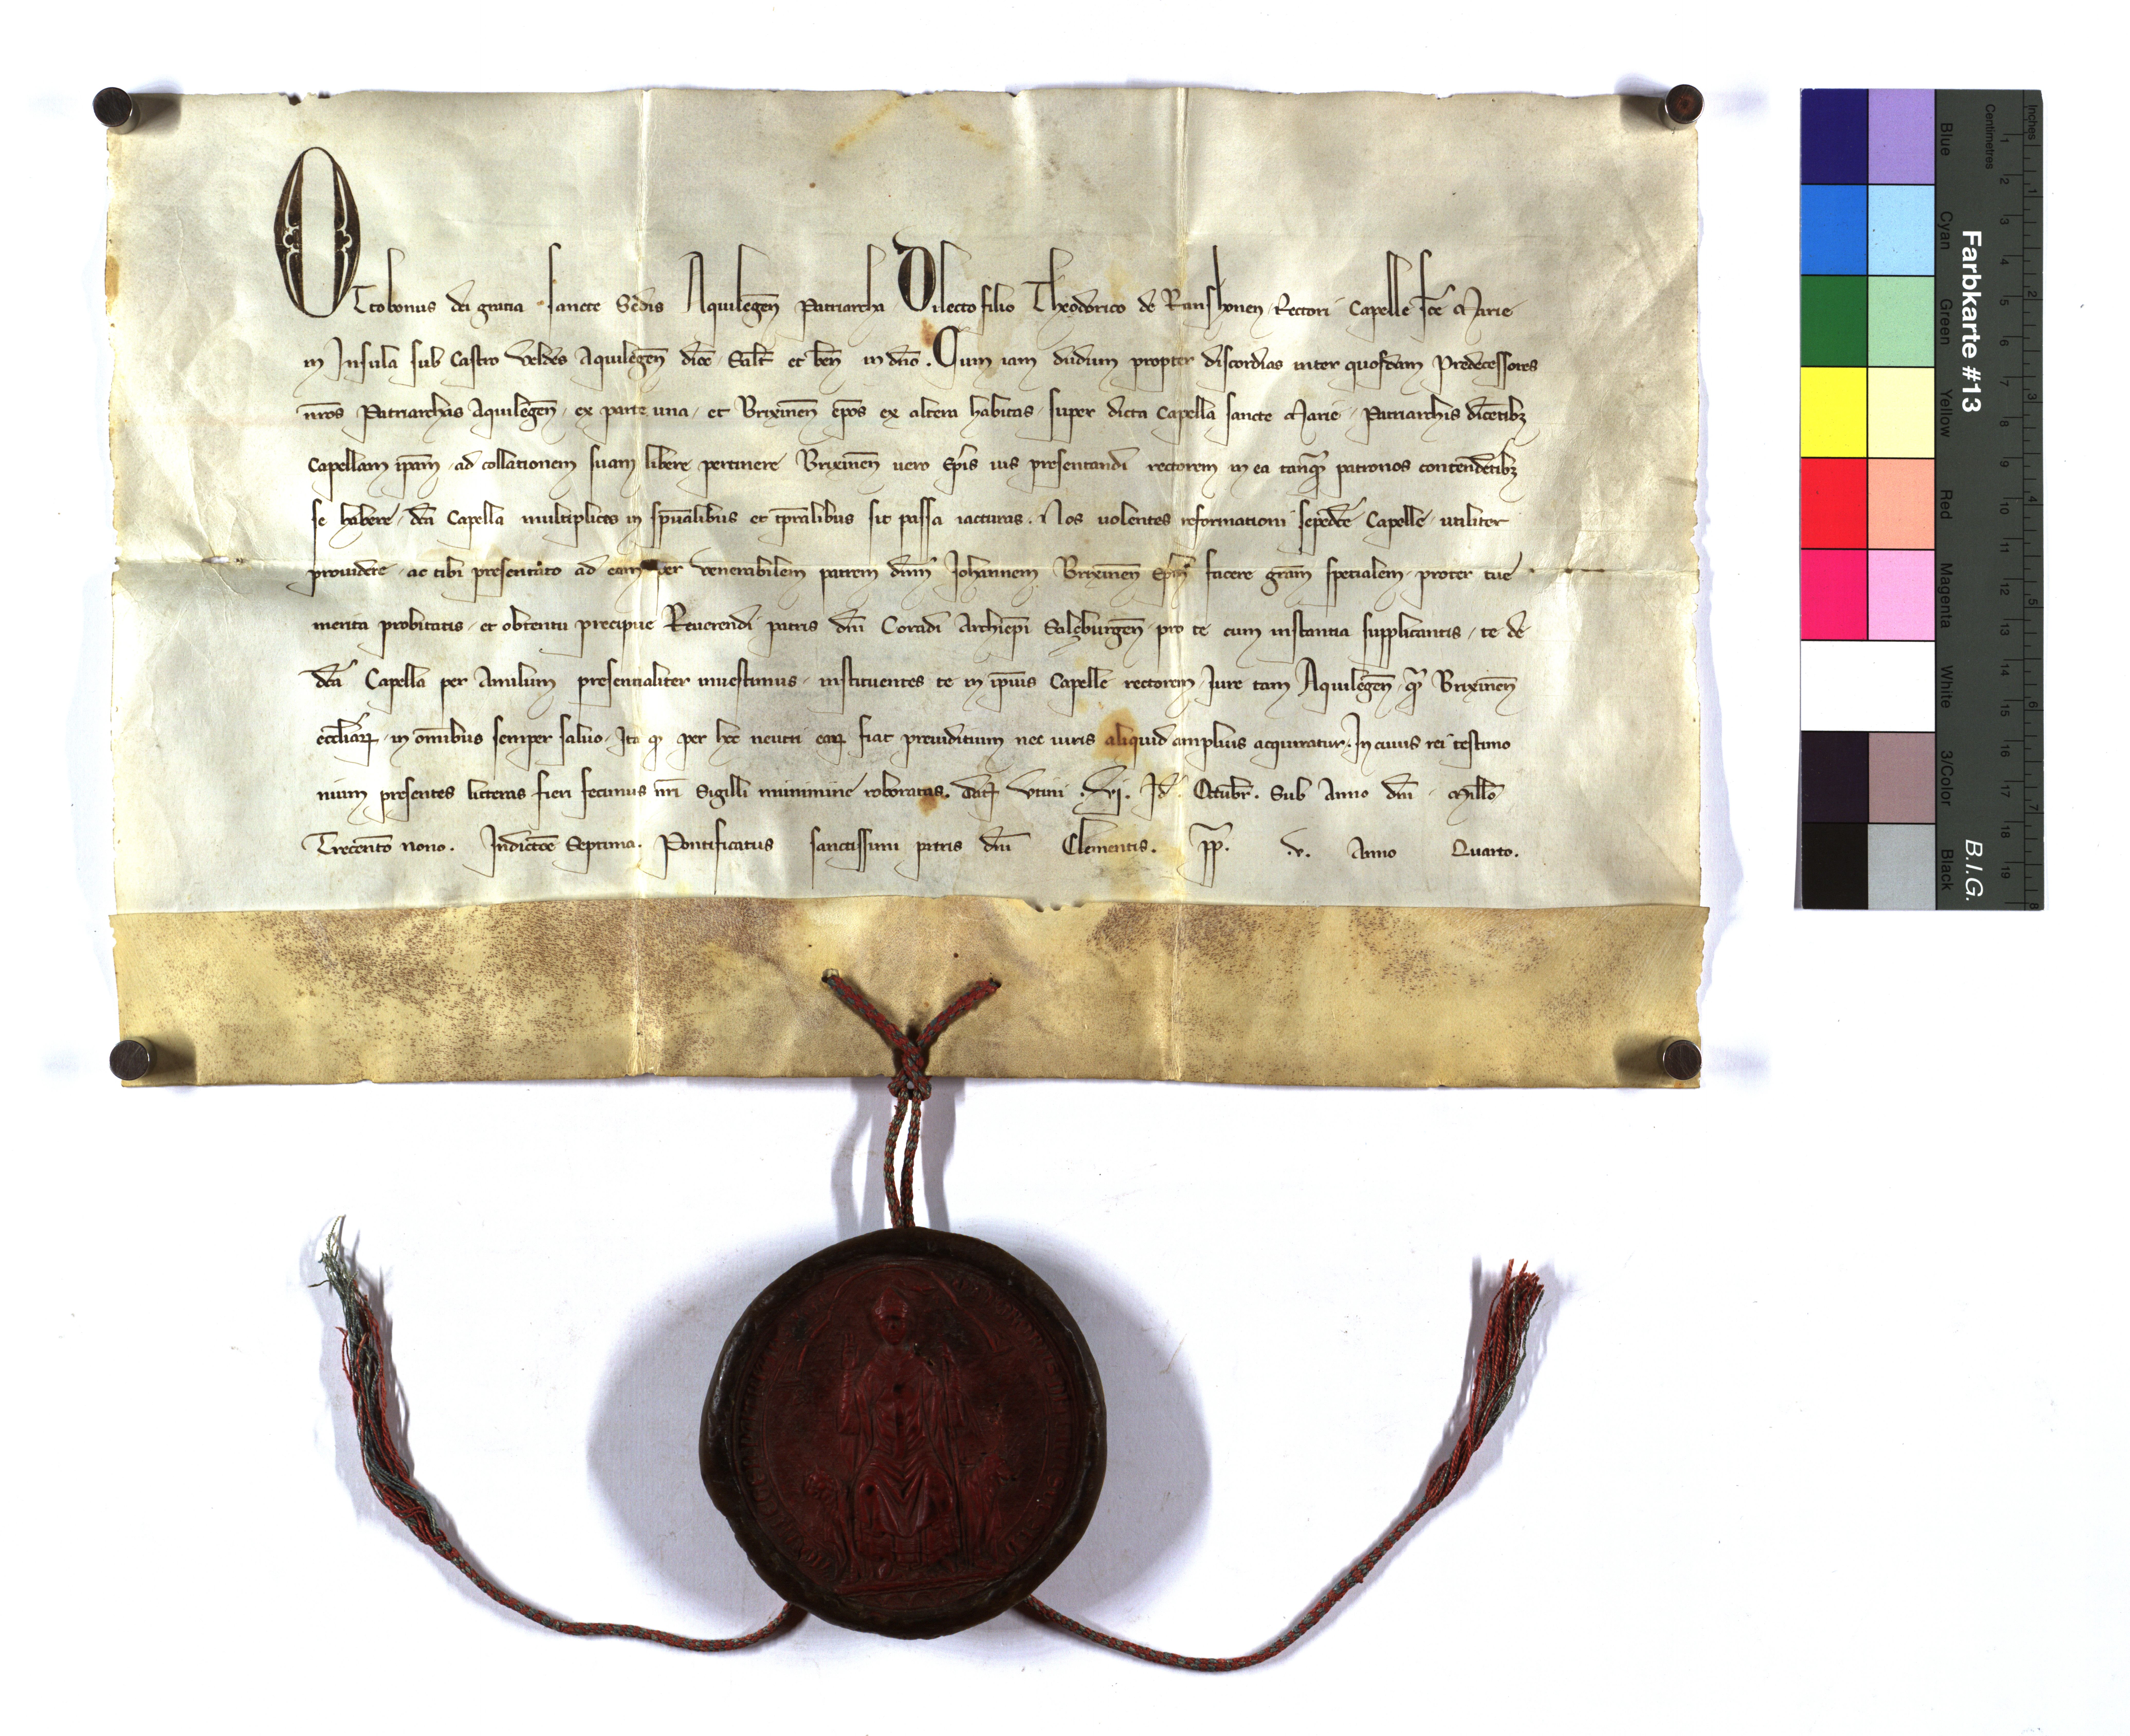 Ottobonus dei gratia sancte Sedis Aquilegen̄ Patriarcha Dilecto filio Theodorico de Ranshouen Rectori Capelle sc̄e Marie
in Insula sub Castro Veldes Aquilegen̄ dioc̄ Salt̄ et ben̄ in dn̄o. Cum iam dudum propter discordias inter quosdam Predecessores
nr̄os Patriarchas Aquilegen̄ ex parte una et Brixinen̄ ep̄os ex altera habitas super dicta Capella sancte Marie Patriarchis dicētibꝫ
Capellam ip̄am ad collationem suam libere pertinere Brixinen̄ uero Ep̄is ius presentandi rectorem in ea tanq̄ꝫ patronos contendētibꝫ
se habere dc̄a Capella multiplices in sp̄ualibus et tp̄ralibus sit passa iacturas. Nos uolentes reformationi sepedc̄e Capelle utiliter
prouidere ac tibi presentato ad eam per venerabilem patrem dn̄m Johannem Brixinen̄ Ep̄m facere gr̄am spetialem propter tue
merita probitatis et obtentu precipue Reuerendi patris dn̄i Coradi Archiep̄i Salzburgen̄ pro te cum instantia supplicantis te de
dc̄a Capella per Anulum presentialiter inuestimus instituentes te in ip̄ius Capelle rectorem Iure tam Aquilegen̄ q̄ꝫ Brixinen̄
eccl̄iaꝝ in om̄ibus semper saluo Ita ꝙ per hec neutri eaꝝ fiat preiuditium nec iuris aliquid amplius acquiratur. In cuius rei testimo
nium presentes litteras fieri fecimus nr̄i Sigilli munimine roboratas. Dat̄ Vtini .vj. Id. Octubr̄. Sub Anno dn̄i Mill̄o
Trecent̄o nono. Indictōe Septima. Pontificatus sanctissimi patris dn̄i Clementis. pp̄. .v. Anno Quarto.
Farbkarte #13
B.I.G.
Inches
Centimetres
1 2 3 4 5 6 7 8 9 10 11 12 13 14 15 16 17 18 19
1 2 3 4 5 6 7 8
Blue
Cyan
Green
Yellow
Red
Magenta
White
3/Color
Black